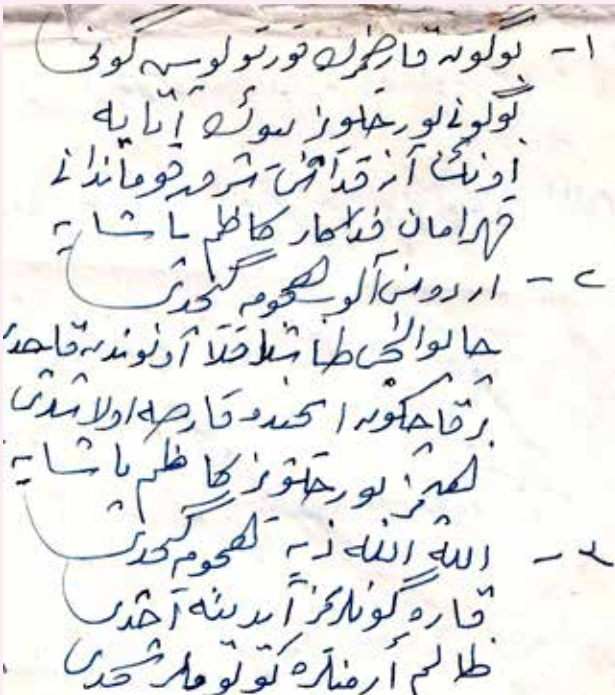 ١- بوگون قارصمزڭ قورتولوش گونى
بوگونى بورجلويز بيوك آتايه
اونڭ آرقداشى شرق قوماندانى
قهرامان فداكار كاظم پاشايه
٢- اردوسن آلوب هجومه گچدى
چالوالچى طاشلاقدا اوڭوندن قاچدى
بر قاچ گون ايچنده قارصه اولاشدى
هپمز بورجلويز كاظم پاشايه
٣- الله الله ديه هجومه گچدى
قاره گونلرمز آيدينه آچدى
ظالم أرمنلره كوتوملر